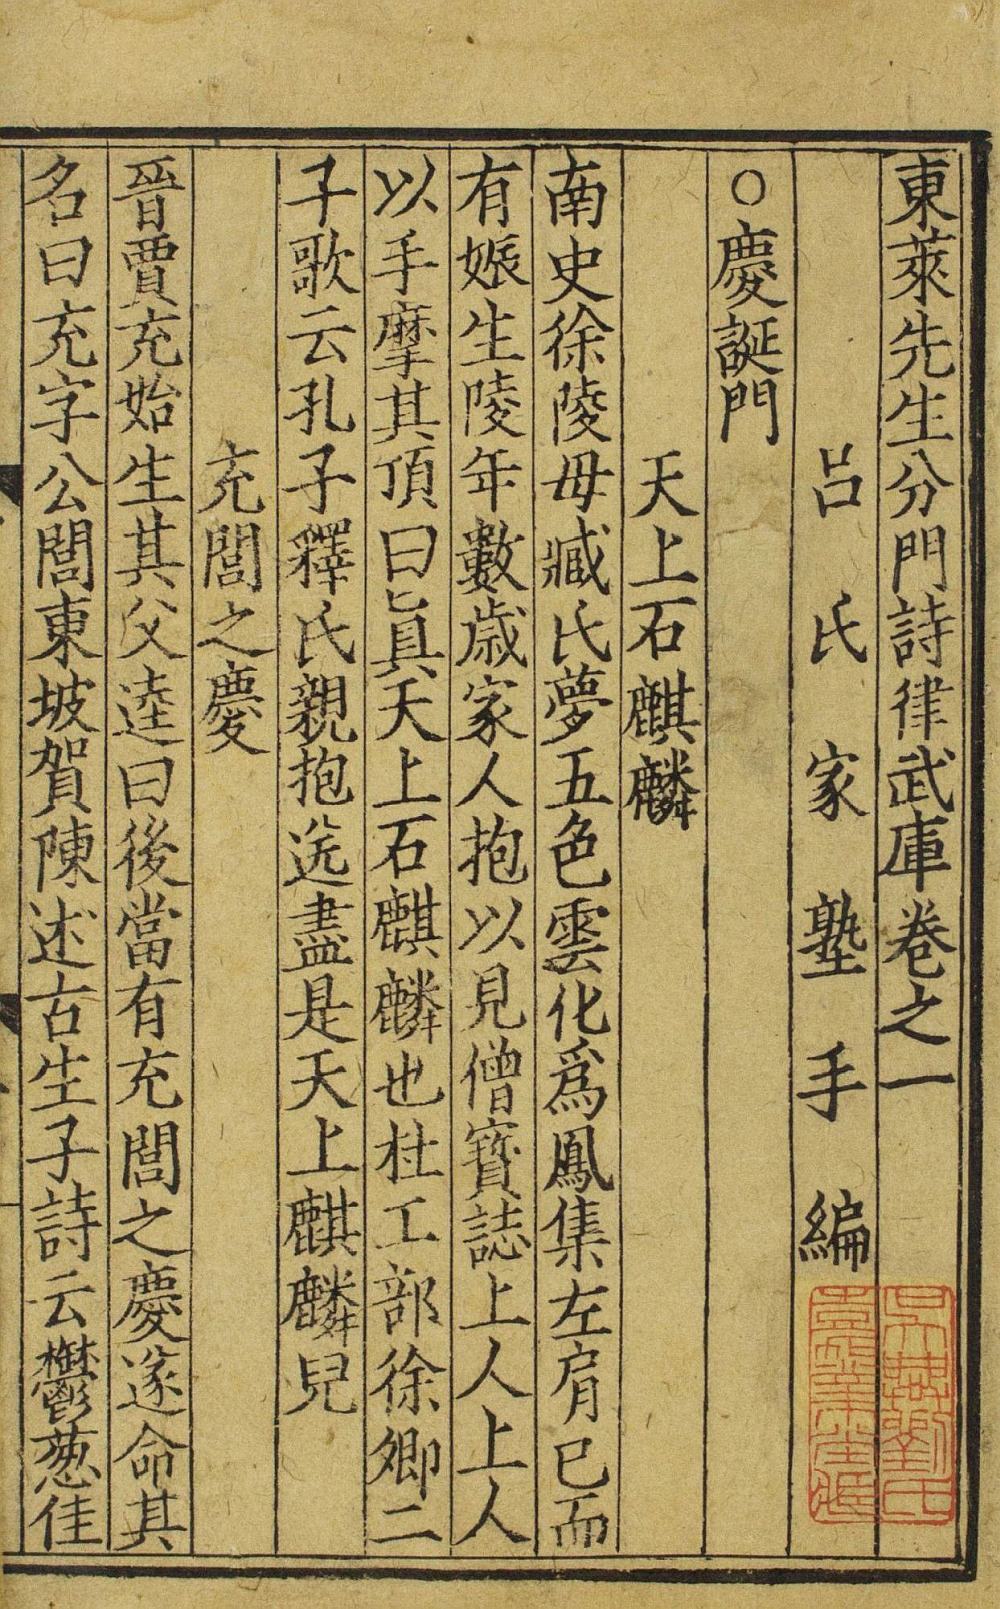 東萊先生分門詩律武庫卷之一
呂氏家塾手編
○慶誕門
天上石麒麟
南史徐陵母臧氏夢五色雲化爲鳳集左肩已而
有娠生陵年數歲家人抱以見僧寶誌上人上人
以手摩其頂曰眞天上石麒麟也杜工部徐卿二
子歌云孔子釋氏親抱送盡是天上麒麟兒
充閭之慶
晉賈充始生其父逵曰後當有充閭之慶遂命其
名曰充字公閭東坡賀陳述古生子詩云鬱葱佳
吳興劉氏
嘉業堂藏